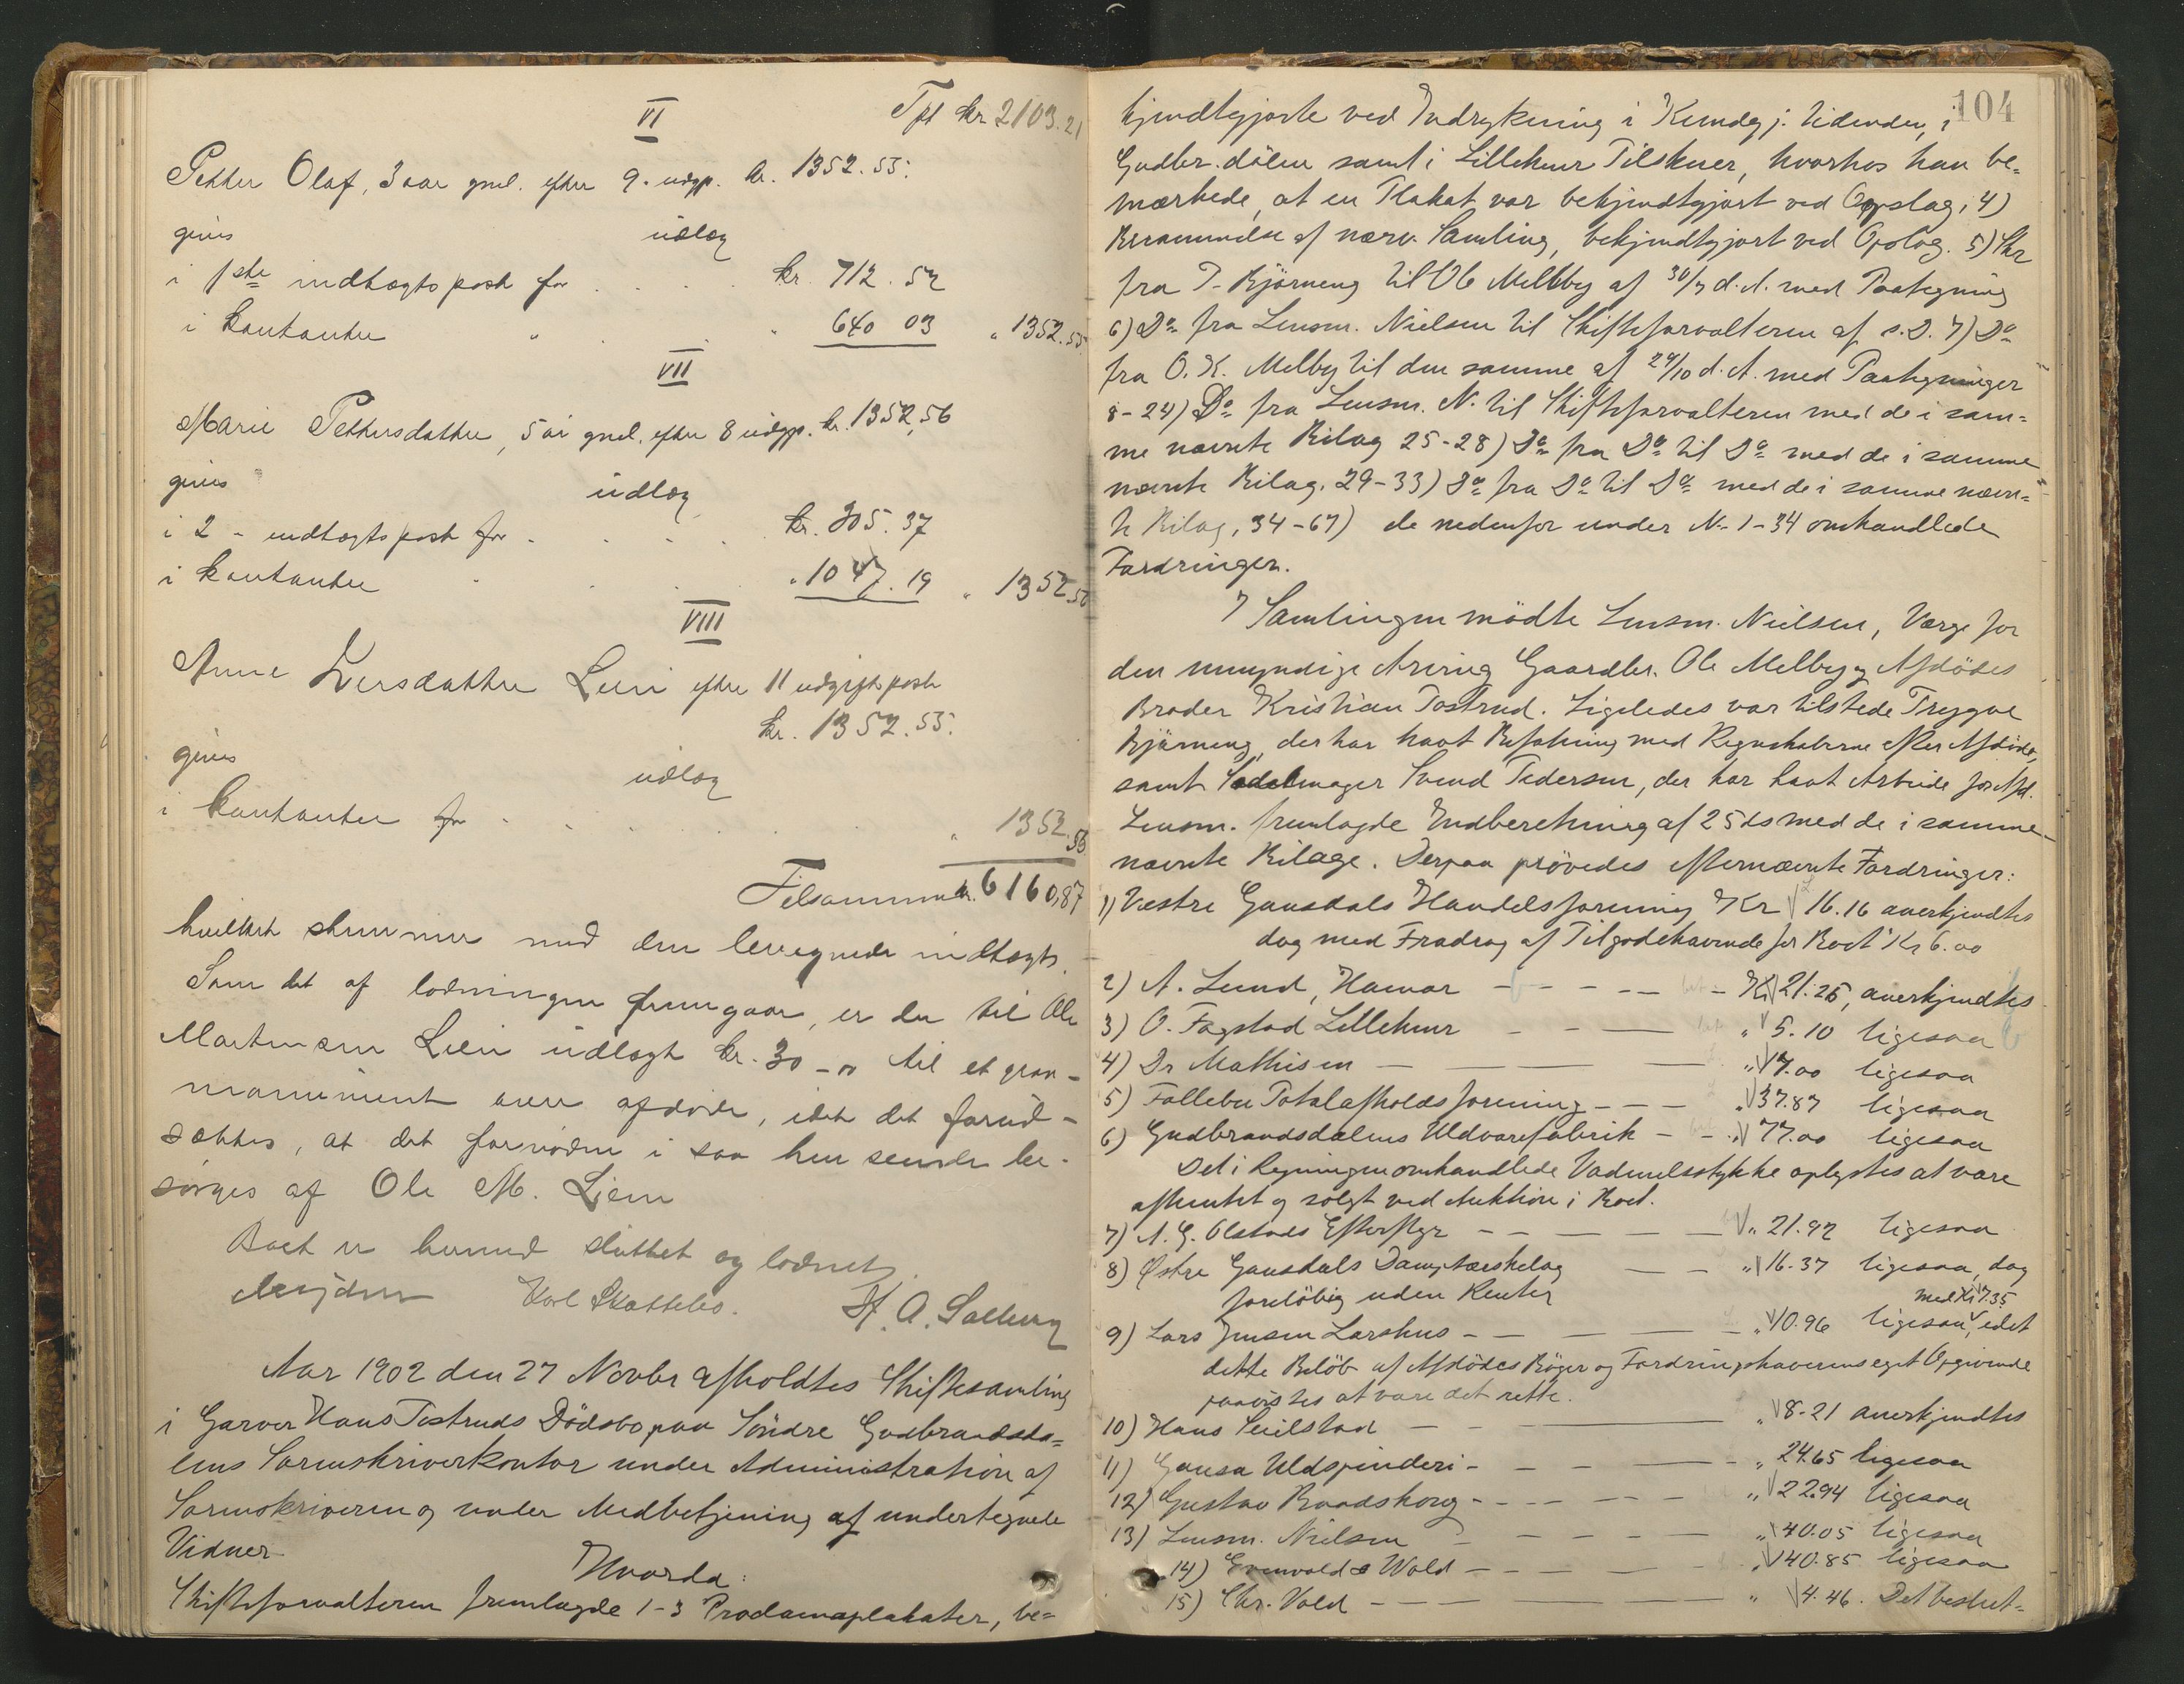 VI
Tpt kr 2103.21
Petter Olaf, 3 aar gml. efter 9. udgp. kr. 1352.55.
gives udlæg
i 1ste indtægtspost for . . . . kr. 712.52
i kontanter " . . " 640 03 " 1352.55
VII
Marie Pettersdatter, 5 år gml. efter 8 udgp. kr. 1352,56
gives udlæg
i 2 - indtægtspost for . . . . kr. 305.37
i kontanter " . . " 1047.19 " 1352.56
VIII
Anne Iversdatter Lien efter 11 udgiftspost
kr. 1352.55.
gives udlæg
i kontanter for . . . . " 1352.55
Tilsammen kr. 6160,87
hvilket stemmer med den beregnede indtægt.
Som det af lodningen fremgaar, er der til Ole
Martinsen Lien udlagt kr. 30 - 00 til et grav-
monument over afdøde, idet det forud-
sættes, at det fornødne i saa henseende be-
sørges af Ole M. Lien
Boet er herved sluttet og loddet
Karl Skattebo. H. A. Solberg
Aar 1902 den 27 Novbr afholdtes Skiftesamling
i Garver Hans Tostruds Dödsbo paa Söndre Gudbrandsda=
lens Sorenskriverkontor under Administration af
Sorenskriveren og under Medbetjening af undertegnede
Vidner
Hvorda:
Skifteforvalteren fremlagde 1-3 Proclamaplakater, be=
104
kjendtgjorte ved Indrykning i Kundgj. tidender, i
Gudbr.dölen samt i Lillehmr Tilskuer, hvorhos han be=
mærkede, at en Plakat var bekjendtgjort ved Opslag, 4)
Berammelse af nærv. Samling, bekjendtgjort ved Opslag. 5) Skr
fra T. Björneng til Ole Mellby af 30/7 d. A. med Paategning
6) Do fra Lensm. Nielsen til Skifteforvalteren af s. D. 7) Do
fra O. K. Melby til den samme af 29/10 d. A. med Paategninger
8-24) Do fra Lensm. N. til Skifteforvalteren med de i sam=
me nævnte Bilag 25-28) Do fra Do til Do med de i samme
nævnte Bilag. 29-33) Do fra Do til Do med de i samme nævn=
te Bilag, 34-67) de nedenfor under No 1-34 omhandlede
Fordringer.
I Samlingen mödte Lensm. Nielsen, Værge for
den umyndige Arving Gaardbr. Ole Melby og Afdödes
Broder Kristian Tostrud. Ligeledes var tilstede Trygve
Björneng, der har havt Befatning med Regnskaberne efter Afdöde,
samt Sadelmager Svend Pedersen, der har havt Arbeide for Afd.
Lensm. fremlagde Indberetning af 25 ds med de i samme
nævnte Bilage. Derpaa prövedes efternævnte Fordringer:
1) Vestre Gausdals Handelsforening Kr 16.16 anerkjendtes
dog med Fradrag af Tilgodehavende for Boet Kr 6.00
2) A. Lund, Hamar - - - - Kr 21.25, anerkjendtes
3) O. Fagstad Lillehmr - - - " 5.10 ligesaa
4) Dr Mathisen - - - " 17.00 ligesaa
5) Follebu Totalafholdsforening - - - " 37.87 ligesaa
6) Gudbrandsdalens Uldvarefabrik - - " 77.00 ligesaa
Det i Regningen omhandlede Vadmelsstykke oplystes at være
afhentet og solgt ved Auktion i Boet.
7) A. G. Olstads Efterflgr - - - - " 21.92 ligesaa
8) Østre Gausdals Damptærskelag - - " 16.37 ligesaa, dog
foreløbig uden Renter
med Kr 7.35
9) Lars Jensen Larshus - - - - " 10.96 ligesaa, idet
dette Belöb af Afdödes Böger og Fordringshaverens eget Opgivende
paavistes at være det rette.
10) Hans Seielstad - - - " 8.21 anerkjendtes
11) Gausa Uldspinderi - - - - " 24.65 ligesaa
12) Gustav Baadshoug - - - - " 22.94 ligesaa
13) Lensm. Nielsen - - - - " 40.05 ligesaa
14) Evenvold & Wold - - - - " 140.85 ligesaa
15) Chr. Vold - - - - " 4.46. Det beslut=